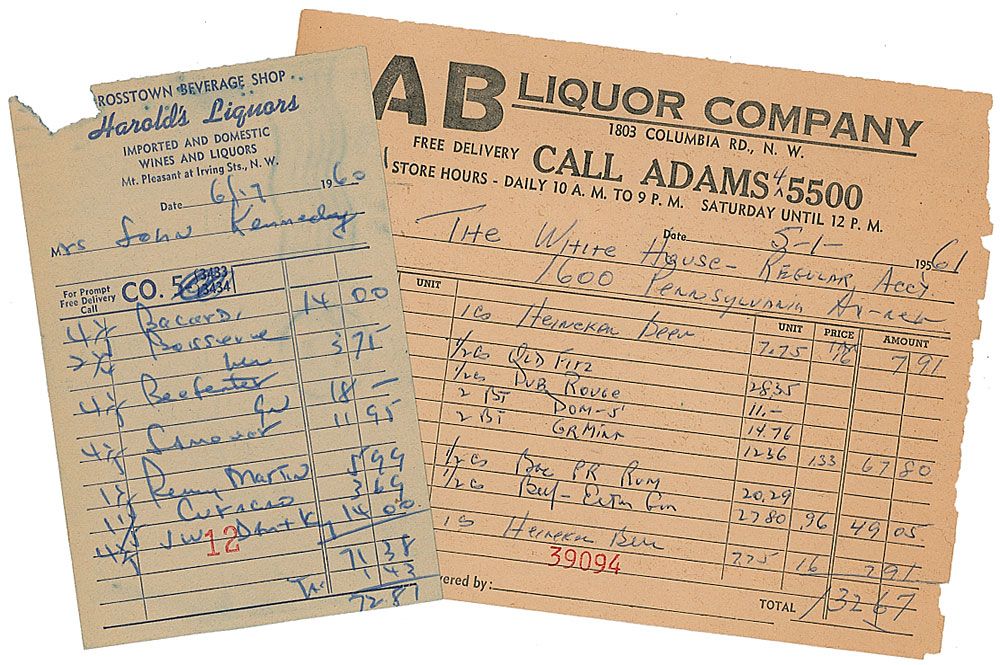 ROSSTOWN BEVERAGE SHOP
Harold's Liquors
IMPORTED AND DOMESTIC
WINES AND LIQUORS
Mt. Pleasant at Irving Sts., N. W.
Date 6/17 1960
Mrs John Kennedy
For Prompt
Free Delivery
Call
CO. 5 13433
13434
4/5 Bacardi 14 00
2/5 Boissiere 3 75
4/5 Beefeater 18 –
4/5 11 95
1/5 Remy Martin 8 99
1/5 Curacao 3 69
4/5 J W 14 00
12
71 38
Tax 1 43
72.81
AB LIQUOR COMPANY
1803 COLUMBIA RD., N. W.
FREE DELIVERY CALL ADAMS 4 5500
STORE HOURS - DAILY 10 A. M. TO 9 P. M. SATURDAY UNTIL 12 P. M.
Date 5-1- 1961
THE WHITE HOUSE - REGULAR ACCT.
1600 PENNSYLVANIA AV-NW
UNIT UNIT PRICE AMOUNT
1 CS HEINEKEN BEER 7.75 16 7 91
1/2 CS OLD FITZ 28.35
1/2 CS DUB ROUGE 11.–
2 BT DOM-5' 14.76
2 BT GR MINT 12 36 1.33 67 80
1/2 CS Bac PR RUM 20.29
1/2 CS Beef-Eater Gin 27 80 .96 49 05
1 CS HEINEKEN Beer 7.75 16 7 91
39094
ered by:
TOTAL 132 67